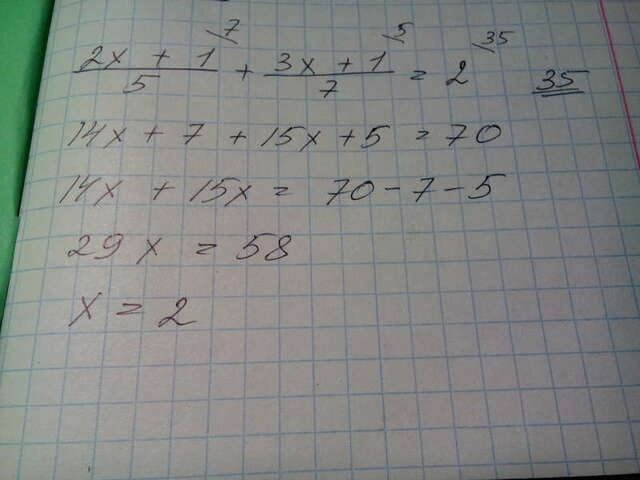 (2x + 1)/5 \7 + (3x + 1)/7 \5 = 2 \35 35
14x + 7 + 15x + 5 = 70
14x + 15x = 70 - 7 - 5
29x = 58
x = 2